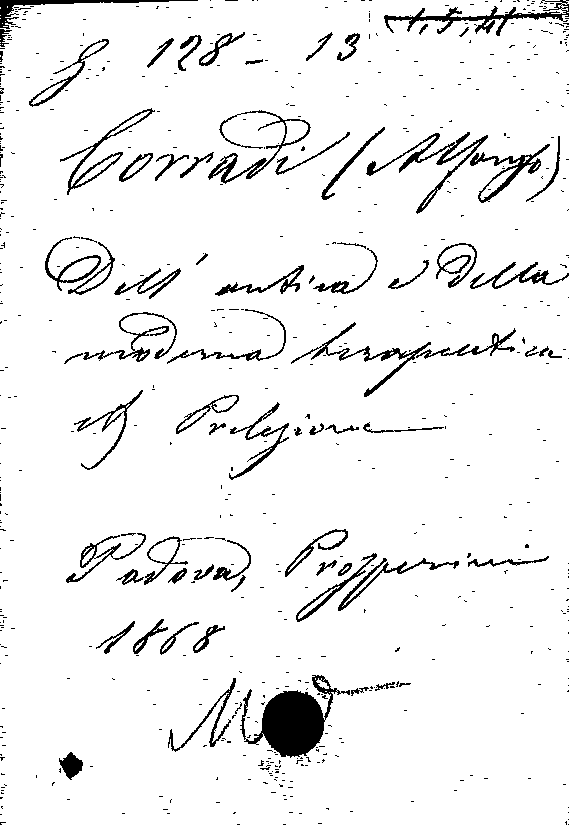 1,5,41
G. 128 - 13
Corradi (Alfonso)
Dell' antica e della
moderna terapeutica
Prelezione
Padova, Prosperini
1868